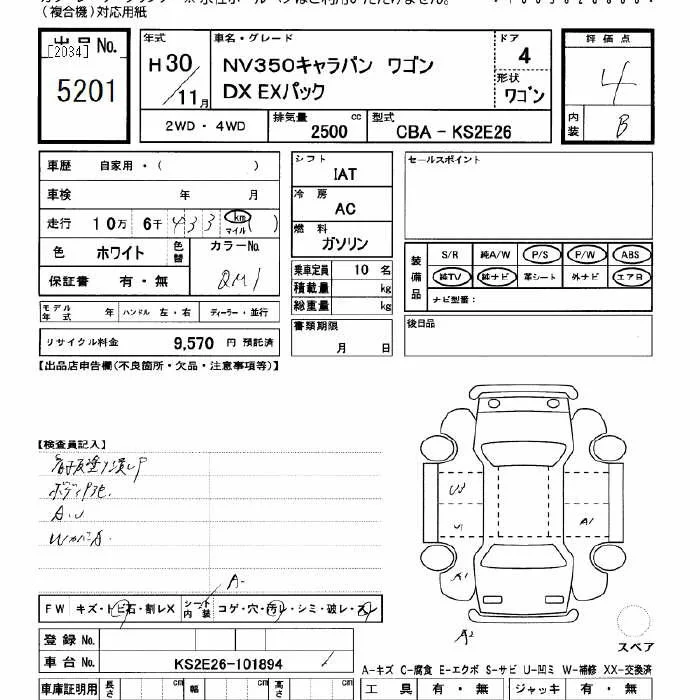 (複合機)対応用紙
出品 No.
[2034]
5201
年式
H30/11月
車名・グレード
NV350キャラバン ワゴン
DX EXパック
ドア
4
形状
ワゴン
評価点
4
内装
B
2WD・4WD
排気量 2500 cc
型式 CBA - KS2E26
車歴 自家用・( )
車検 年 月
走行 10万 6千 433 km マイル ( )
色 ホワイト 色替 カラーNo. QM1
保証書 有・無
モデル年式 年 ハンドル 左・右 ディーラー・並行
リサイクル料金 9,570 円 預託済
シフト IAT
冷房 AC
燃料 ガソリン
乗車定員 10 名
積載量 kg
総重量 kg
書類期限
月 日
セールスポイント
装備品 S/R 純A/W P/S P/W ABS
純TV 純ナビ 革シート 外ナビ エアB
ナビ型番:
後日品
【出品店申告欄(不良箇所・欠品・注意事項等)】
【検査員記入】
A.U
A-
FW キズ・トビ石・割レX シート内装 コゲ・穴・汚レ・シミ・破レ・スレ
登録 No.
車台 No. KS2E26-101894
車庫証明用 長さ cm 幅 cm 高さ cm
U2
U1
A1
A1
A2
スペア
A-キズ C-腐食 E-エクボ S-サビ U-凹ミ W-補修 XX-交換済
工具 有・無 ジャッキ 有・無